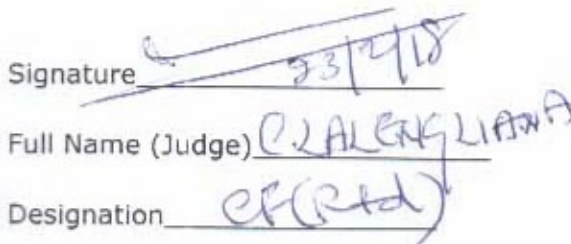 Signature 23/2/18
Full Name (Judge) C.LALENGLIANA
Designation CF(Rtd)